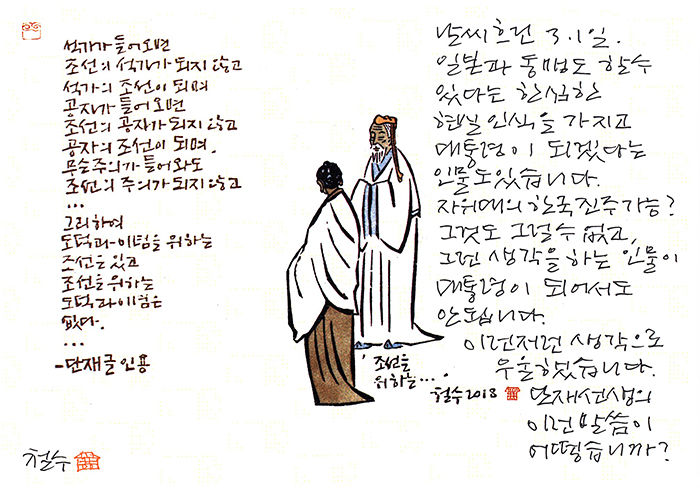 석가가 들어오면
조선의 석가가 되지 않고
석가의 조선이 되며
공자가 들어오면
조선의 공자가 되지 않고
공자의 조선이 되며.
무슨주의가 들어와도
조선의 주의가 되지 않고
...
그리하여
도덕과 이념을 위하는
조선은 있고
조선을 위하는
도덕과 이념은
없다.
...
-단재 글 인용
조선을
위하는...
철수 2018
철수
날씨 흐린 3.1일.
일본과 동맹도 할 수
있다는 한심한
현실인식을 가지고
대통령이 되겠다는
인물도 있습니다.
자위대의 한국진주가능?
그것도 그럴 수 없고,
그런 생각을 하는 인물이
대통령이 되어서도
안됩니다.
이런저런 생각으로
우울했습니다.
단재선생의
이런 말씀이
어떻습니까?